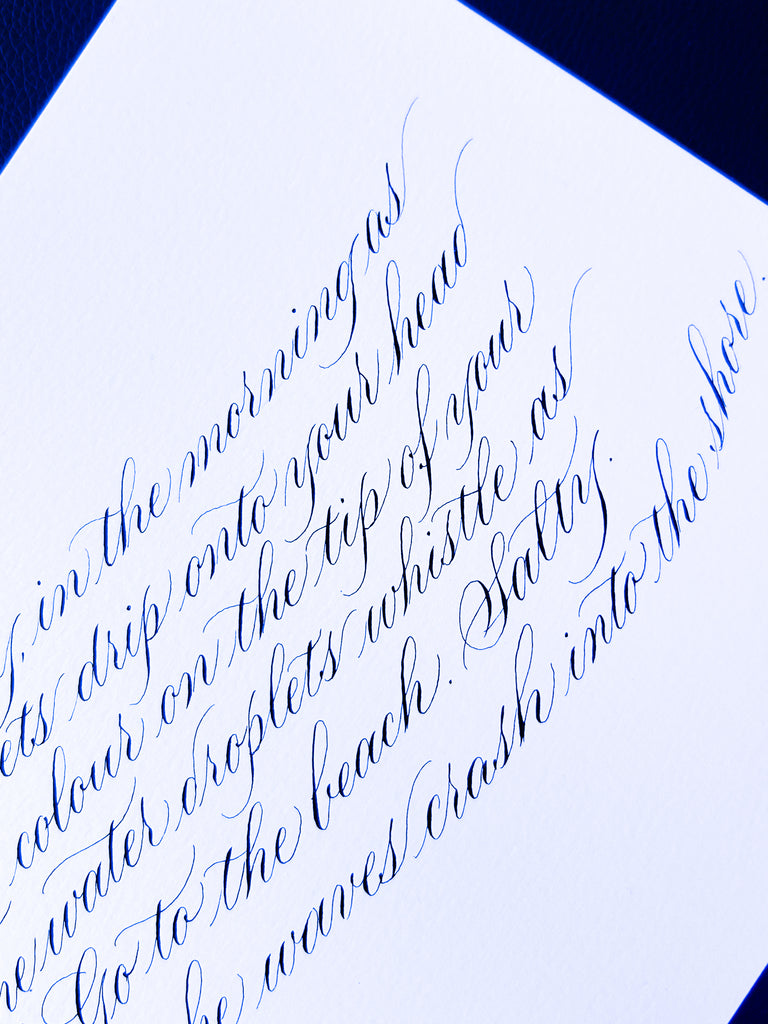 in the morning as
drip onto your head
colour on the tip of your
water droplets whistle as
Go to the beach. Salty.
waves crash into the shore.